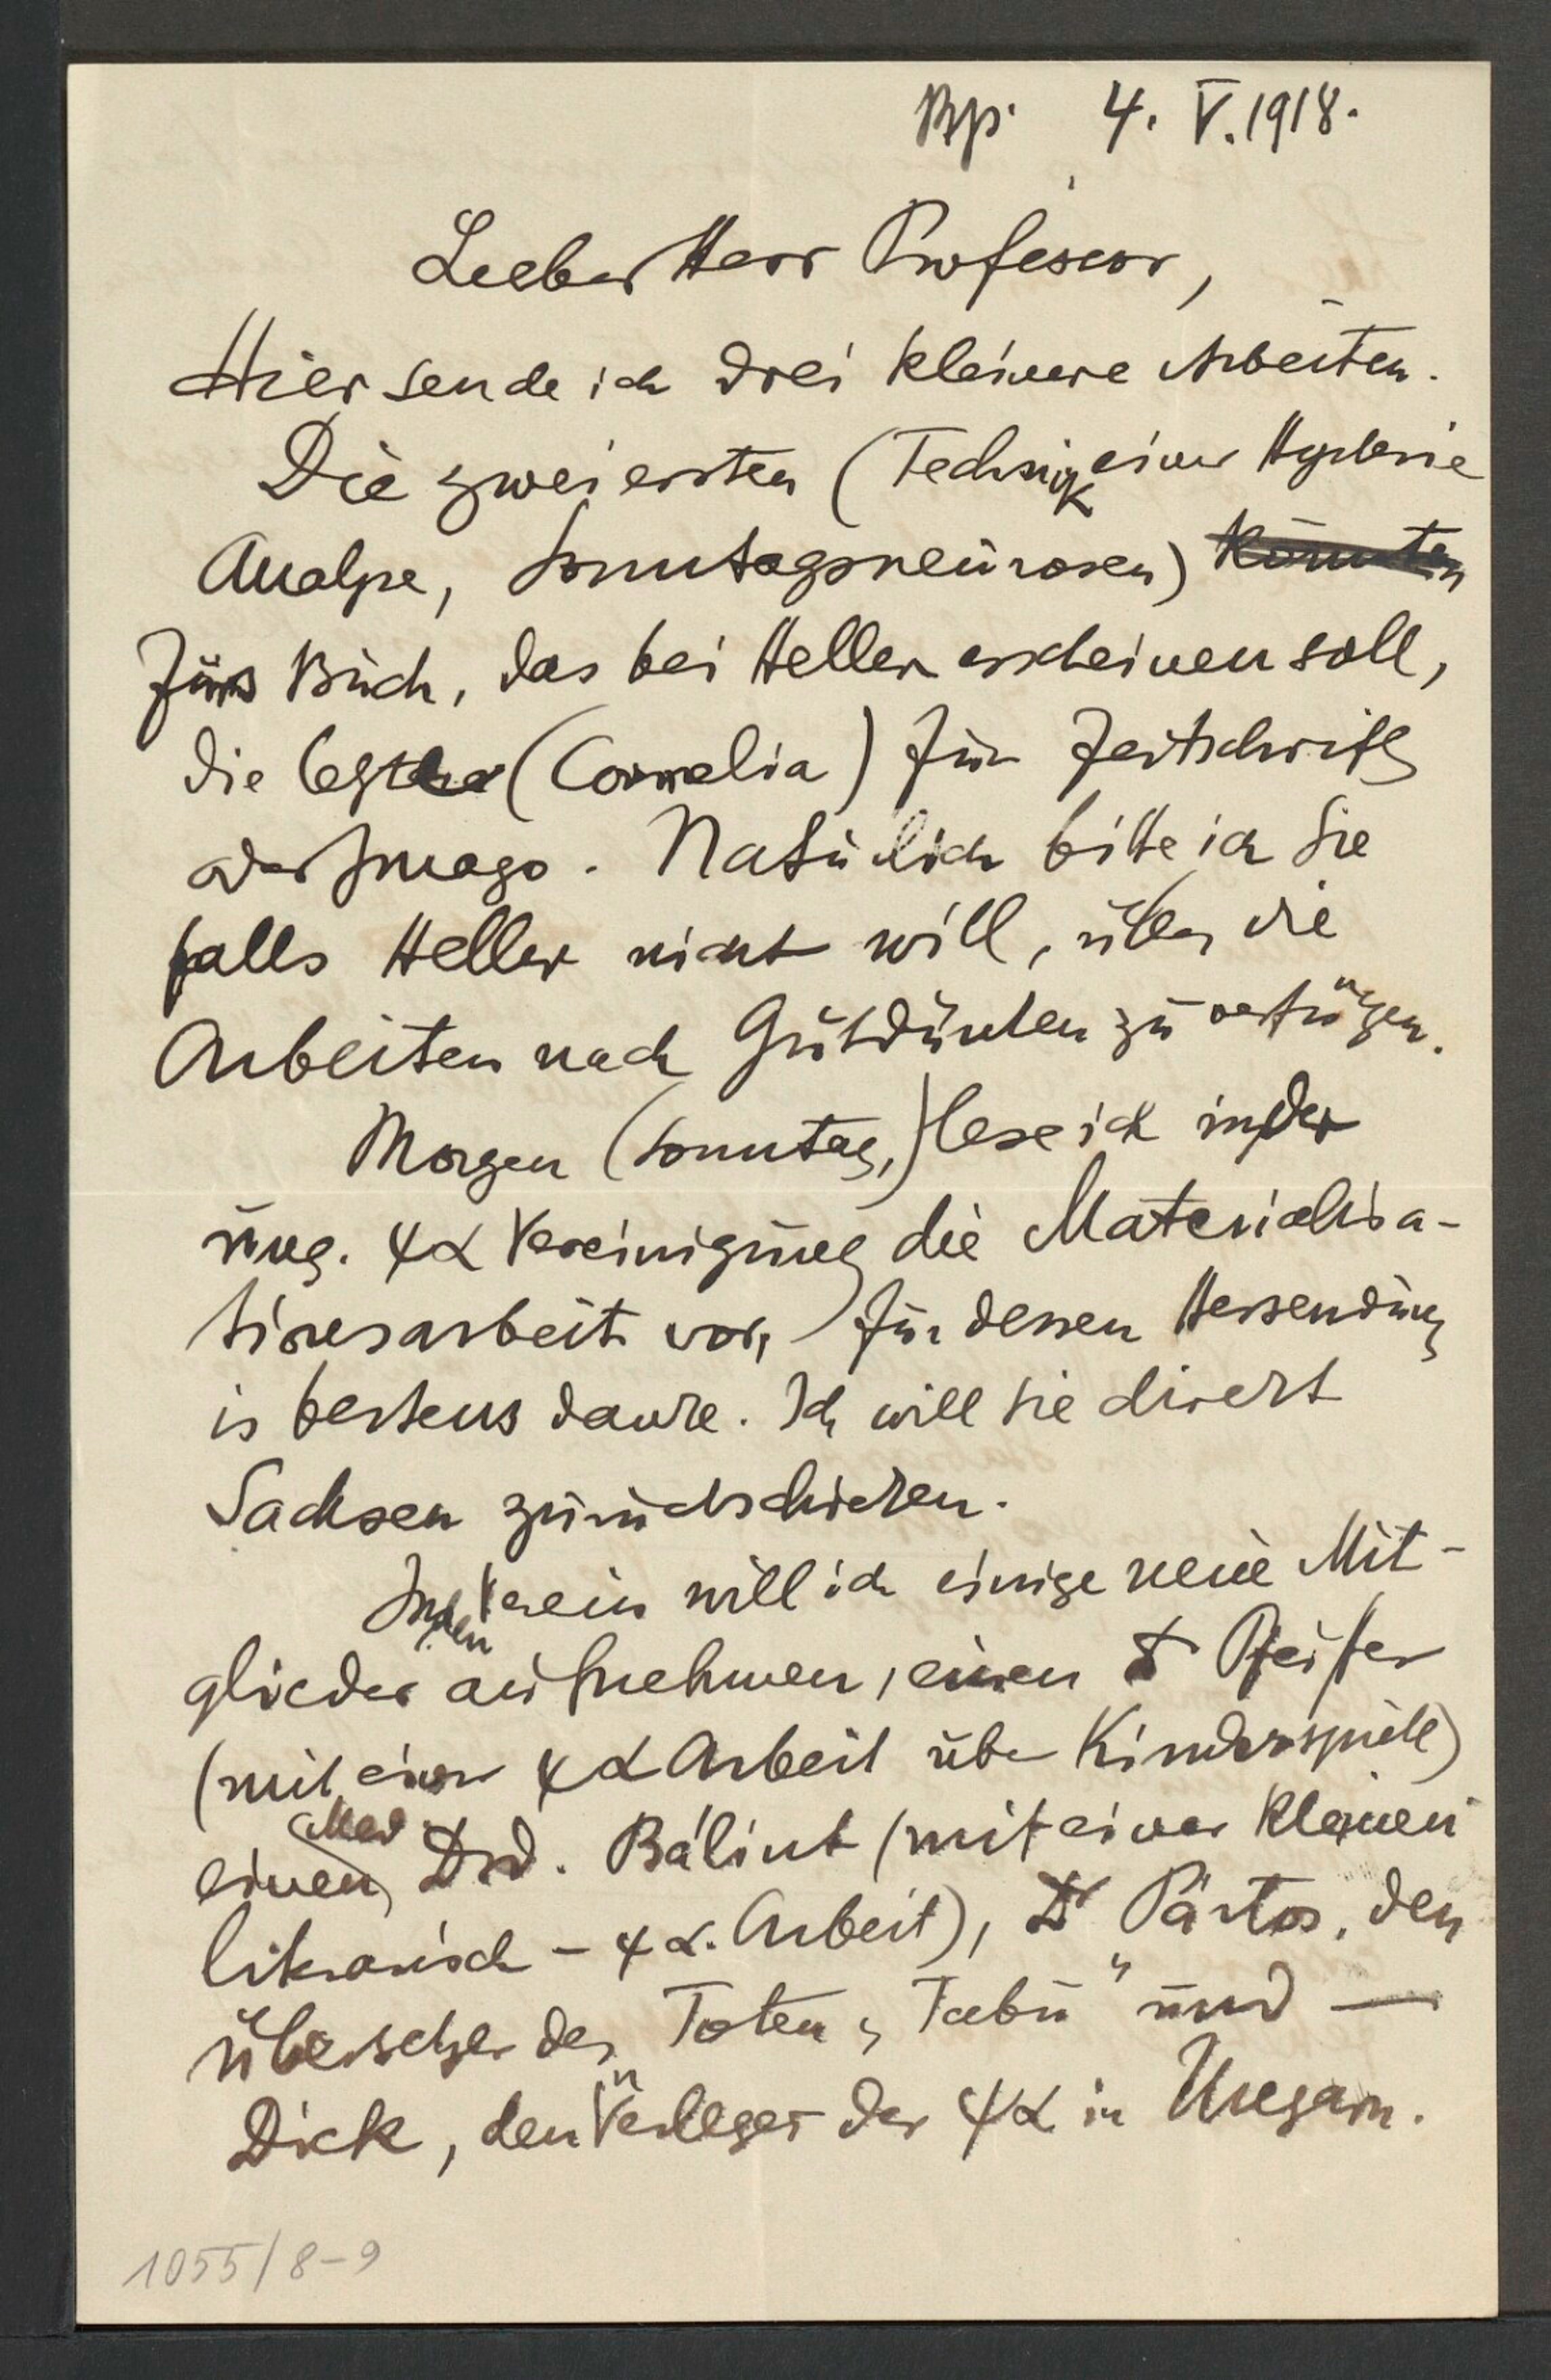 Bp. 4. V. 1918.
Lieber Herr Professor,
Hier sende ich drei kleinere Arbeiten.
Die zwei ersten (Technik einer Hysterie
Analyse, Sonntagsneurosen) könnten
fürs Buch, das bei Heller erscheinen soll,
die letztere (Cornelia) für Zeitschrift
oder Imago. Natürlich bitte ich Sie
falls Heller nicht will, über die
Arbeiten nach Gutdünken zu verfügen.
Morgen (Sonntag,) lese ich in der
ung. ψα Vereinigung die Materialisa-
tionsarbeit vor, für deren Hersendung
ich bestens danke. Ich will sie direkt
Sachsen zurückschicken.
In den Verein will ich einige neue Mit-
glieder aufnehmen, einen Dr Pfeifer
(mit einer ψα Arbeit über Kinderspiele)
einen Med Drd. Bálint (mit einer kleinen
literarisch - ψα. Arbeit), Dr Pártos, den
Übersetzer des „Totem u Tabu" und —
Dick, den Verleger der ψα in Ungarn.
1055/8-9